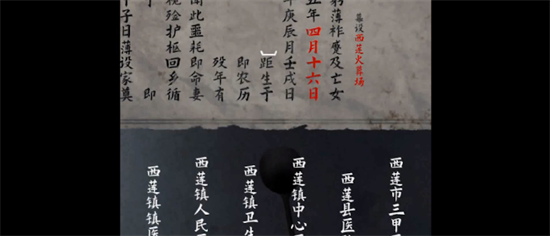 设西莲火葬场
薄祚变及亡女
丑年四月十六日
年庚辰月壬戌日
距生于
即农历
殁年有
此噩耗即命妻
视殓护柩回乡循
即
子日薄设家奠
西莲市三甲
西莲县医
西莲镇中心
西莲镇卫生
西莲镇人民
西莲镇镇医